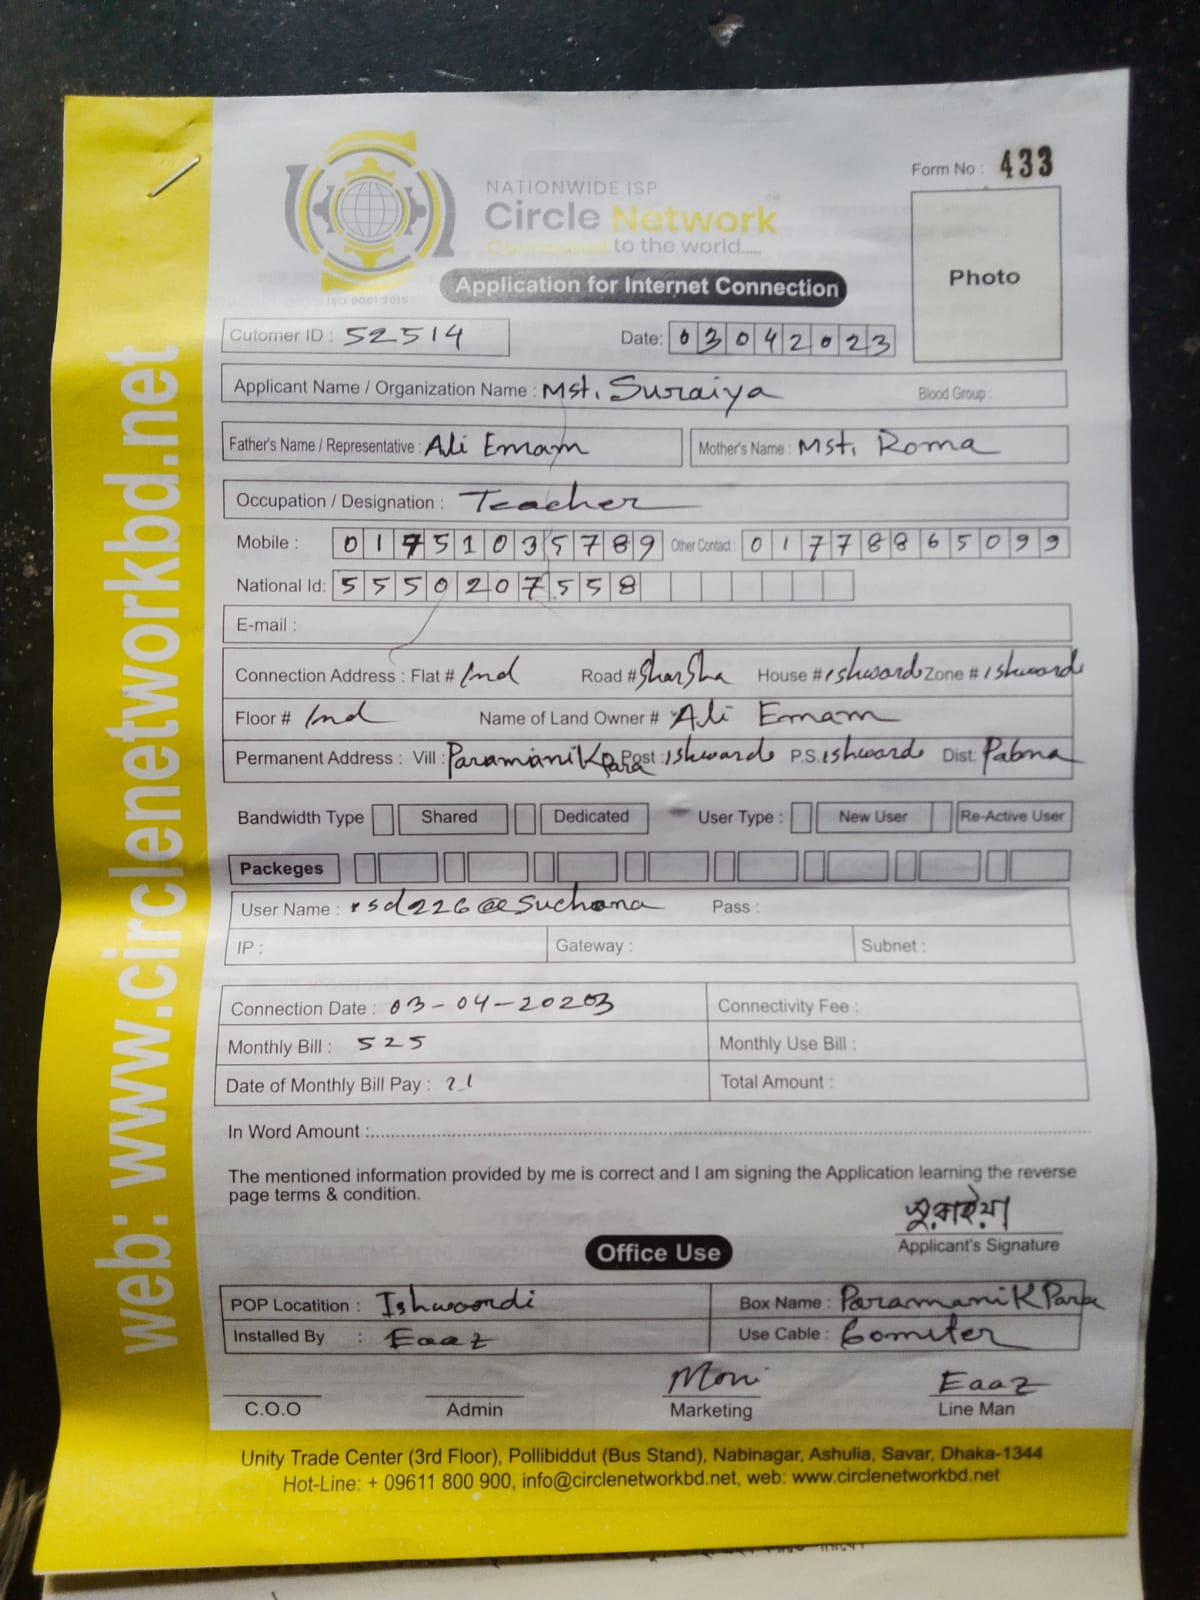 Form No : 433
NATIONWIDE ISP
Circle Network
Connected to the world.....
ISO 9001:2015
Application for Internet Connection
Photo
Cutomer ID : 52514 Date: 03042023
Applicant Name / Organization Name : Mst. Suraiya Blood Group :
Father's Name / Representative : Ali Emam Mother's Name : Mst. Roma
Occupation / Designation : Teacher
Mobile : 01751035789 Other Contact : 01778865099
National Id: 5550207558
E-mail :
Connection Address : Flat # Ind Road # SharSha House # Ishwardi Zone # Ishwardi
Floor # Ind Name of Land Owner # Ali Emam
Permanent Address : Vill : Paramanik Para Post : Ishwardi P.S. Ishwardi Dist: Pabna
Bandwidth Type Shared Dedicated User Type : New User Re-Active User
Packeges
User Name : sd226@suchona Pass :
IP : Gateway : Subnet :
Connection Date : 03-04-2023 Connectivity Fee :
Monthly Bill : 525 Monthly Use Bill :
Date of Monthly Bill Pay : 21 Total Amount :
In Word Amount :
The mentioned information provided by me is correct and I am signing the Application learning the reverse
page terms & condition.
সুরাইয়া
Applicant's Signature
Office Use
POP Locatition : Ishwoordi Box Name : Paramanik Para
Installed By : Eaaz Use Cable : 60miter
Moni Eaaz
C.O.O Admin Marketing Line Man
Unity Trade Center (3rd Floor), Pollibiddut (Bus Stand), Nabinagar, Ashulia, Savar, Dhaka-1344
Hot-Line: + 09611 800 900, info@circlenetworkbd.net, web: www.circlenetworkbd.net
web: www.circlenetworkbd.net